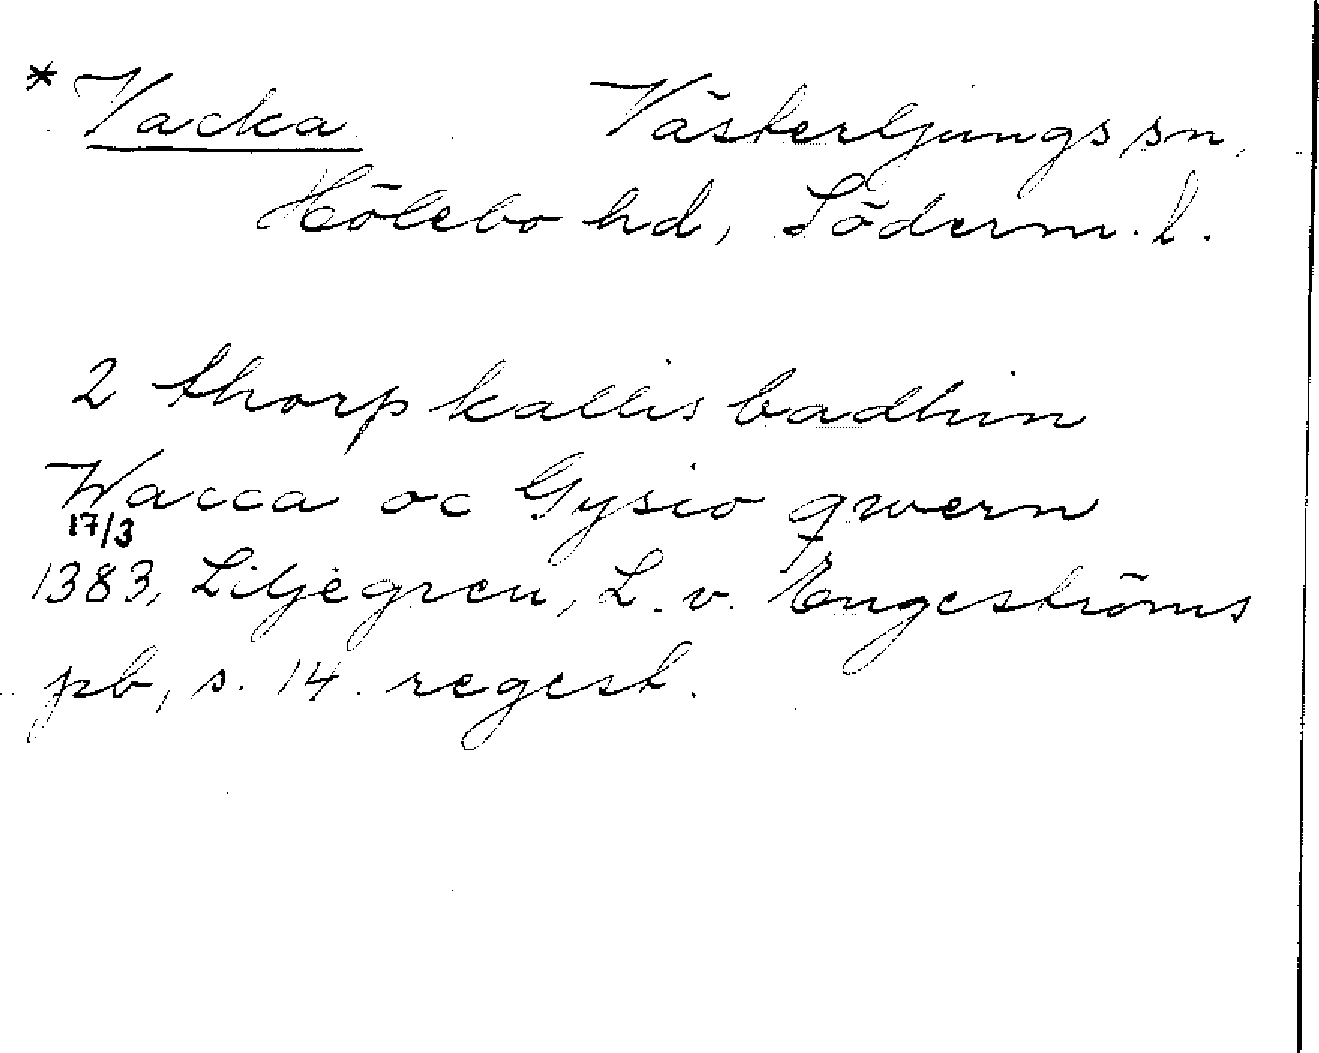 * Vacka Västerljungs sn,
Hölebo hd, Söderm. l.
2 thorp kallis badhin
Wacca oc Gysio qwern
17/3
1383, Liljegren, L. v. Engeströms
pb, s. 14. regest.